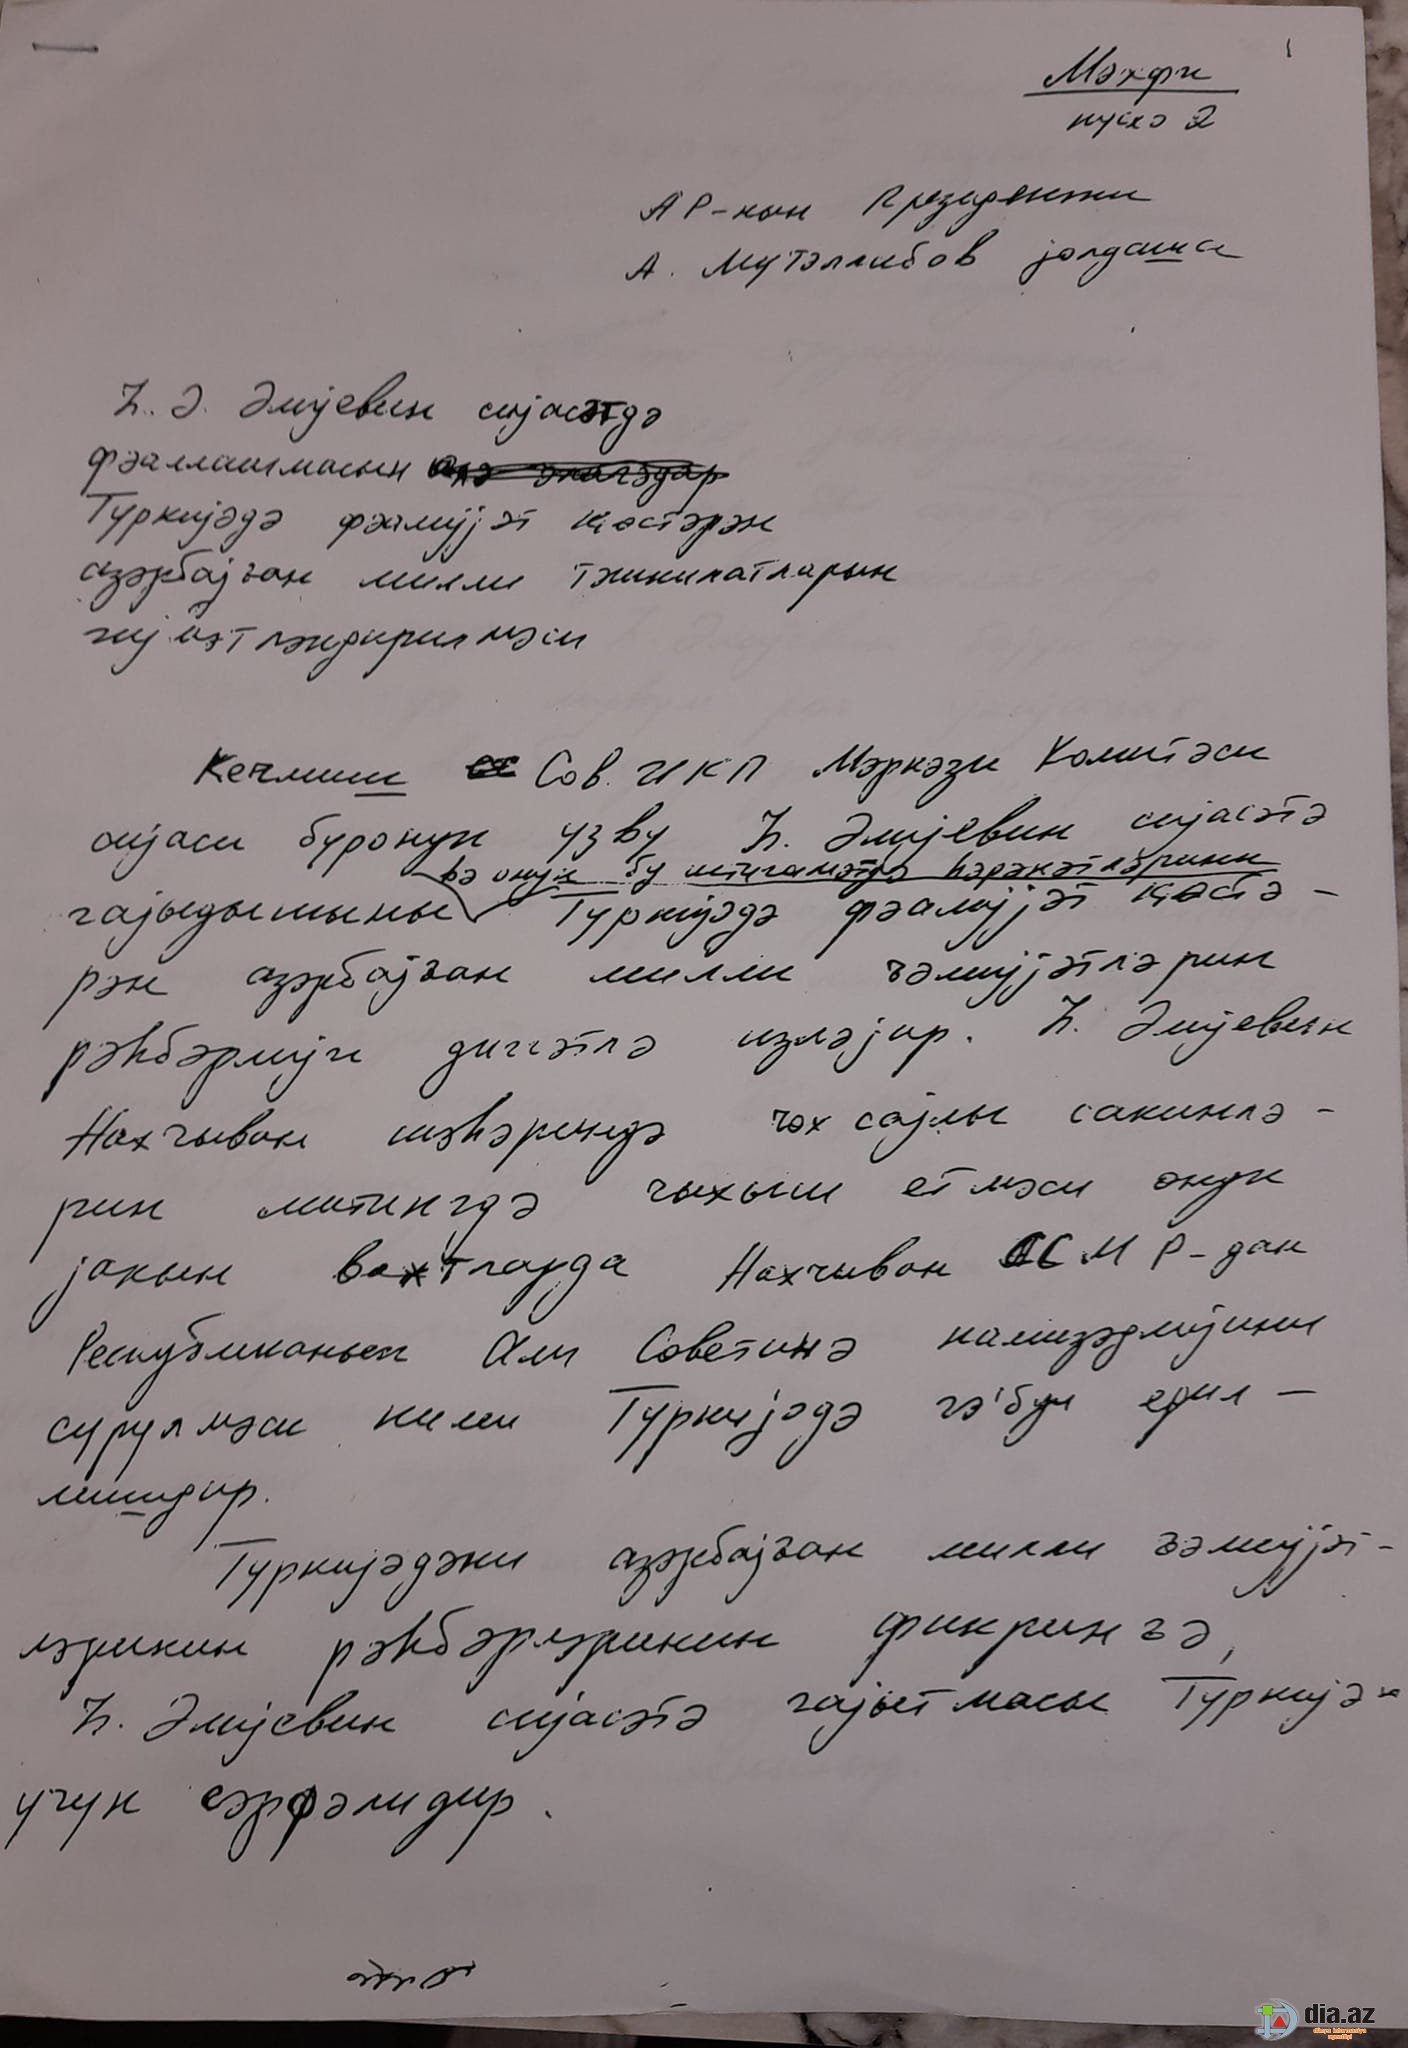 Мәхфи
нүсхә 2
1
АР-нын Президенти
А. Мүтәллибов јолдаша
Һ. Ә. Әлијевин сијасәтдә
фәаллашмасын
Түркијәдә фәалијјәт ҝөстәрән
азәрбајҹан милли тәшкилатларын
гијмәтләндирилмәси
Кечмиш Сов. ИКП Мәркәзи Комитәси
сијаси бүронун үзвү Һ. Әлијевин сијасәтә
вә онун бу истигамәтдә һәрәкәтләрини
гајыдышыны Түркијәдә фәалијјәт ҝөстә-
рән азәрбајҹан милли ҹәмијјәтләрин
рәһбәрлији диггәтлә изләјир. Һ. Әлијевин
Нахчыван шәһәриндә чох сајлы сакинлә-
рин митингдә чыхыш етмәси онун
јакын вахтларда Нахчыван МР-дан
Республиканын Али Советинә намизәдлијини
сүрүлмәси кими Түркијәдә гә'бул едил-
мишдир.
Түркијәдәки азәрбајҹан милли ҹәмијјәт-
ләринин рәһбәрләринин фикринҹә,
Һ. Әлијевин сијасәтә гајытмасы Түркијә
үчүн сәрфәлидир.
dia.az